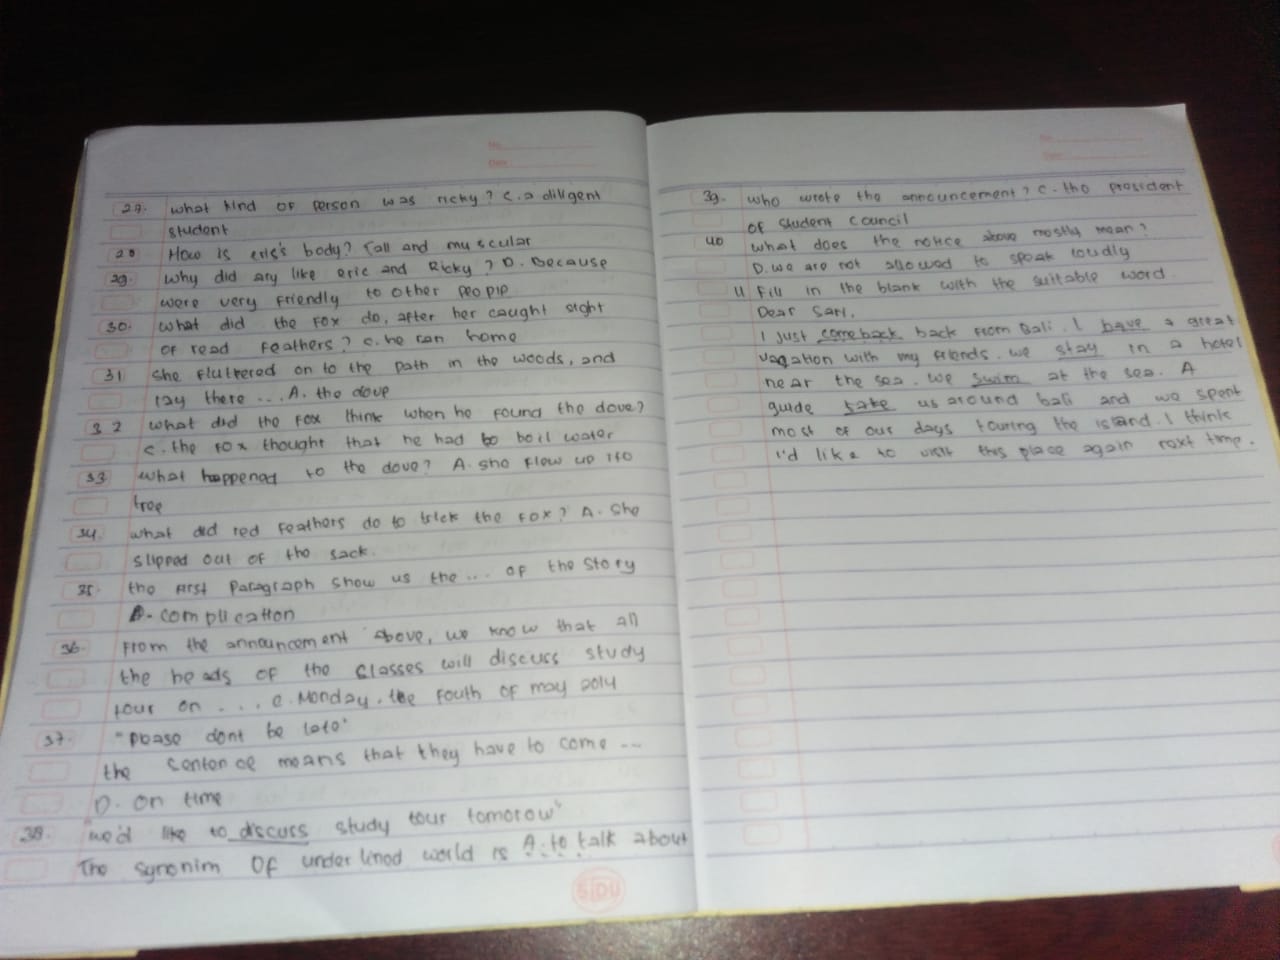 27. what kind of person was ricky? c. a diligent
student
28 How is eric's body? Tall and muscular
29. Why did any like eric and Ricky? D. Because
were very friendly to other peopie
30. what did the Fox do, after her caught sight
of read feathers? c. he ran home
31 she fluttered on to the path in the woods, and
lay there ... A. the dove
32 what did the Fox think when he found the dove?
c. the fox thought that he had to boil water
33 what happened to the dove? A. she flew up ito
tree
34. what did red feathers do to trick the Fox? A. She
slipped out of the sack.
35. the first Paragraph show us the ... of the story
complication
36. From the announcement above, we know that all
the heads of the classes will discuss study
tour on ... c. Monday, the fouth of may 2014
37. "please dont be late"
the sentence means that they have to come ...
D. on time
38. "we'd like to discuss study tour tomorow"
The synonim of underlined world is A. to talk about
No.
Date
39. who wrote the announcement? c. the president
of student council
40 what does the notice above mostly mean?
D. we are not allowed to speak loudly
Fill in the blank with the suitable word.
Dear Sari,
I just come back back from Bali. I have a great
vacation with my friends. we stay in a hotel
near the sea. We swim at the sea. A
guide take us around bali and we spent
most of our days touring the island. I think
I'd like to visit this place again next time.
SIDU